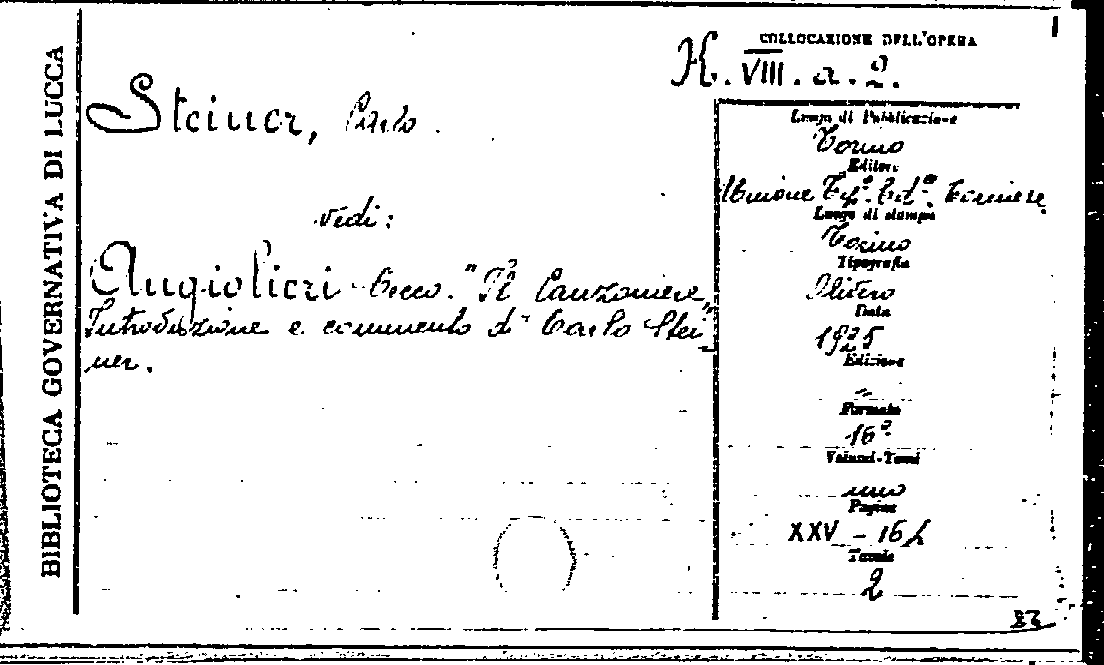 BIBLIOTECA GOVERNATIVA DI LUCCA
COLLOCAZIONE DELL'OPERA
K. VIII. a. 2.
Steiner, Carlo.
vedi:
Angiolieri Cecco. "Il Canzoniere,,
Introduzione e commento di Carlo Stei-
ner.
Luogo di Pubblicazione
Torino
Editore
Unione Tip. Ed. Torinese
Luogo di stampa
Torino
Tipografia
Data
1925
Edizione
"
Formato
16°
Volumi-Tomi
uno
Pagine
XXV -
Tavole
2